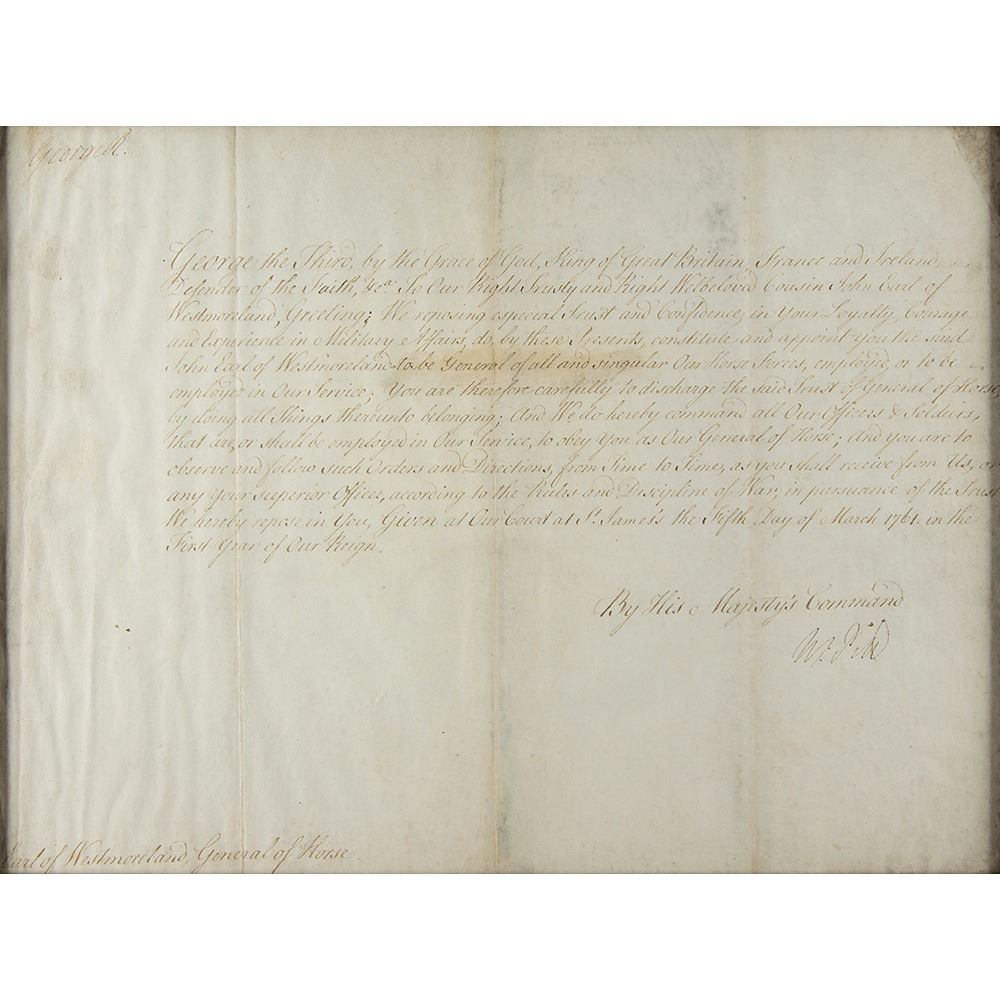 George R.
George the Third, by the Grace of God, King of Great Britain, France and Ireland,
Defender of the Faith, &c.a To Our Right Trusty and Right Welbeloved Cousin John Earl of
Westmoreland, Greeting; We reposing especial Trust and Confidence, in your Loyalty, Courage
and Experience in Military Affairs, do, by these Presents, constitute and appoint You the said
John Earl of Westmoreland to be General of all and singular Our Horse Forces, employed, or to be
employed in Our Service; You are therefore carefully to discharge the said Trust of General of Horse
by doing all Things thereunto belonging; And We do hereby command all Our Officers & Soldiers,
that are, or shall be employed in Our Service, to obey You as Our General of Horse; And you are to
observe and follow such Orders and Directions, from Time to Time, as you shall receive from Us, or
any your superior Officer, according to the Rules and Discipline of War, in pursuance of the Trust
We hereby repose in You, Given at Our Court at St. James's the Fifth Day of March 1761. in the
First Year of Our Reign.
By His Majesty's Command
W. Pitt
Earl of Westmoreland, General of Horse